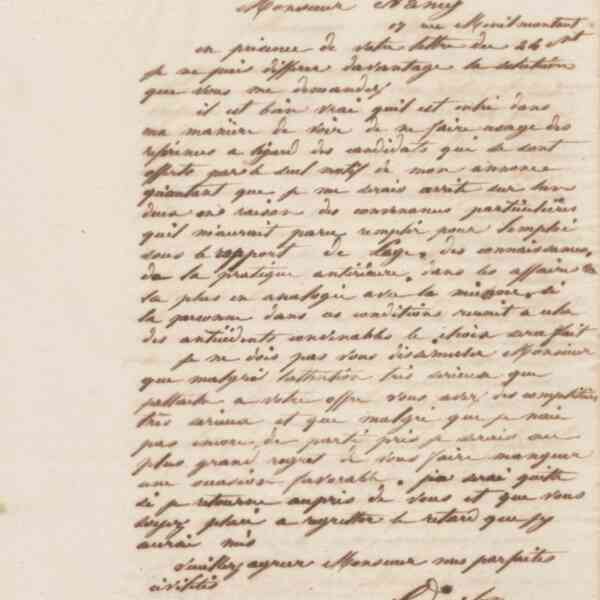 Monsieur Nancy
17 rue Menilmontant
en présence de votre lettre du 24 ct
je ne puis differer davantage la solution
que vous me demandez
il est bien vrai quil est entré dans
ma manière de voir de ne faire usage des
références a légard des candidats qui se sont
offerts par le seul motif de mon annonce
qu'autant que je me serais arrêté sur lun
deux en raison des convenances particulières
quil m'aurait paru remplir pour lemploi
sous le rapport de lage, des connaissances,
de la pratique antérieure, dans les affaires
la plus en analogie avec la mienne. si
la personne dans ces conditions réunit a cela
des antécédents convenables le choix sera fait
je ne dois pas vous dissimuler Monsieur
que malgré lattention très serieuse que
jattache a votre offre vous avez des compétiteurs
très serieux et que malgré que je naie
pas encore de parti pris je serais au
plus grand regret de vous faire manquer
une occasion favorable. jen serai quitte
si je retourne auprès de vous et que vous
soyez placé a regretter le retard que j'y
aurai mis
Veuillez agréer Monsieur mes parfaites
civilités